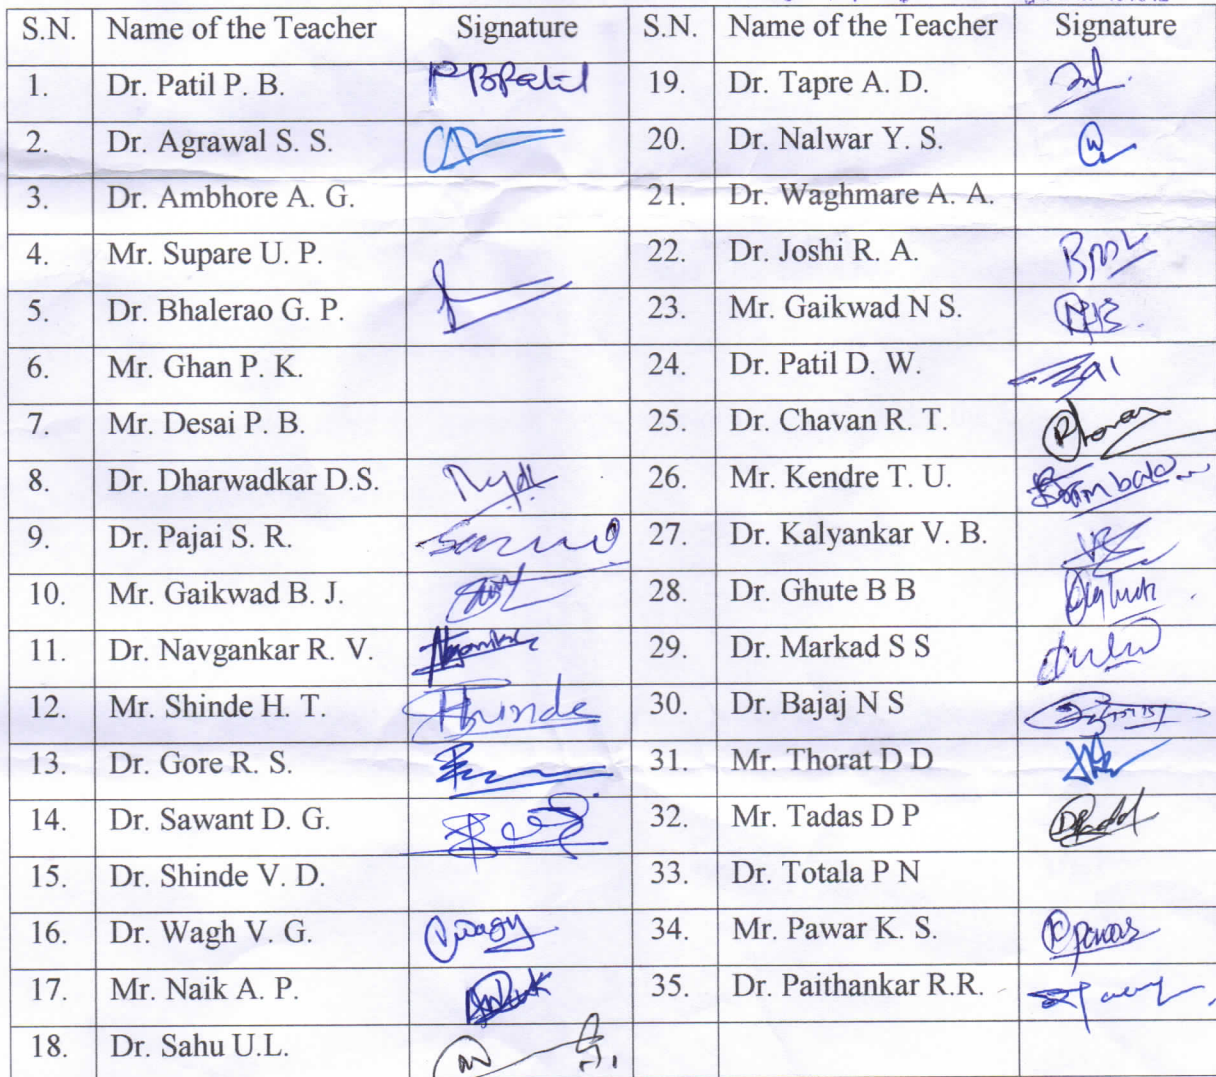 S.N. Name of the Teacher Signature S.N. Name of the Teacher Signature
1. Dr. Patil P. B. P B Patil 19. Dr. Tapre A. D.
2. Dr. Agrawal S. S. 20. Dr. Nalwar Y. S.
3. Dr. Ambhore A. G. 21. Dr. Waghmare A. A.
4. Mr. Supare U. P. 22. Dr. Joshi R. A.
5. Dr. Bhalerao G. P. 23. Mr. Gaikwad N S.
6. Mr. Ghan P. K. 24. Dr. Patil D. W.
7. Mr. Desai P. B. 25. Dr. Chavan R. T.
8. Dr. Dharwadkar D.S. 26. Mr. Kendre T. U.
9. Dr. Pajai S. R. 27. Dr. Kalyankar V. B.
10. Mr. Gaikwad B. J. 28. Dr. Ghute B B
11. Dr. Navgankar R. V. 29. Dr. Markad S S
12. Mr. Shinde H. T. HShinde 30. Dr. Bajaj N S
13. Dr. Gore R. S. 31. Mr. Thorat D D
14. Dr. Sawant D. G. 32. Mr. Tadas D P
15. Dr. Shinde V. D. 33. Dr. Totala P N
16. Dr. Wagh V. G. 34. Mr. Pawar K. S.
17. Mr. Naik A. P. 35. Dr. Paithankar R.R.
18. Dr. Sahu U.L.